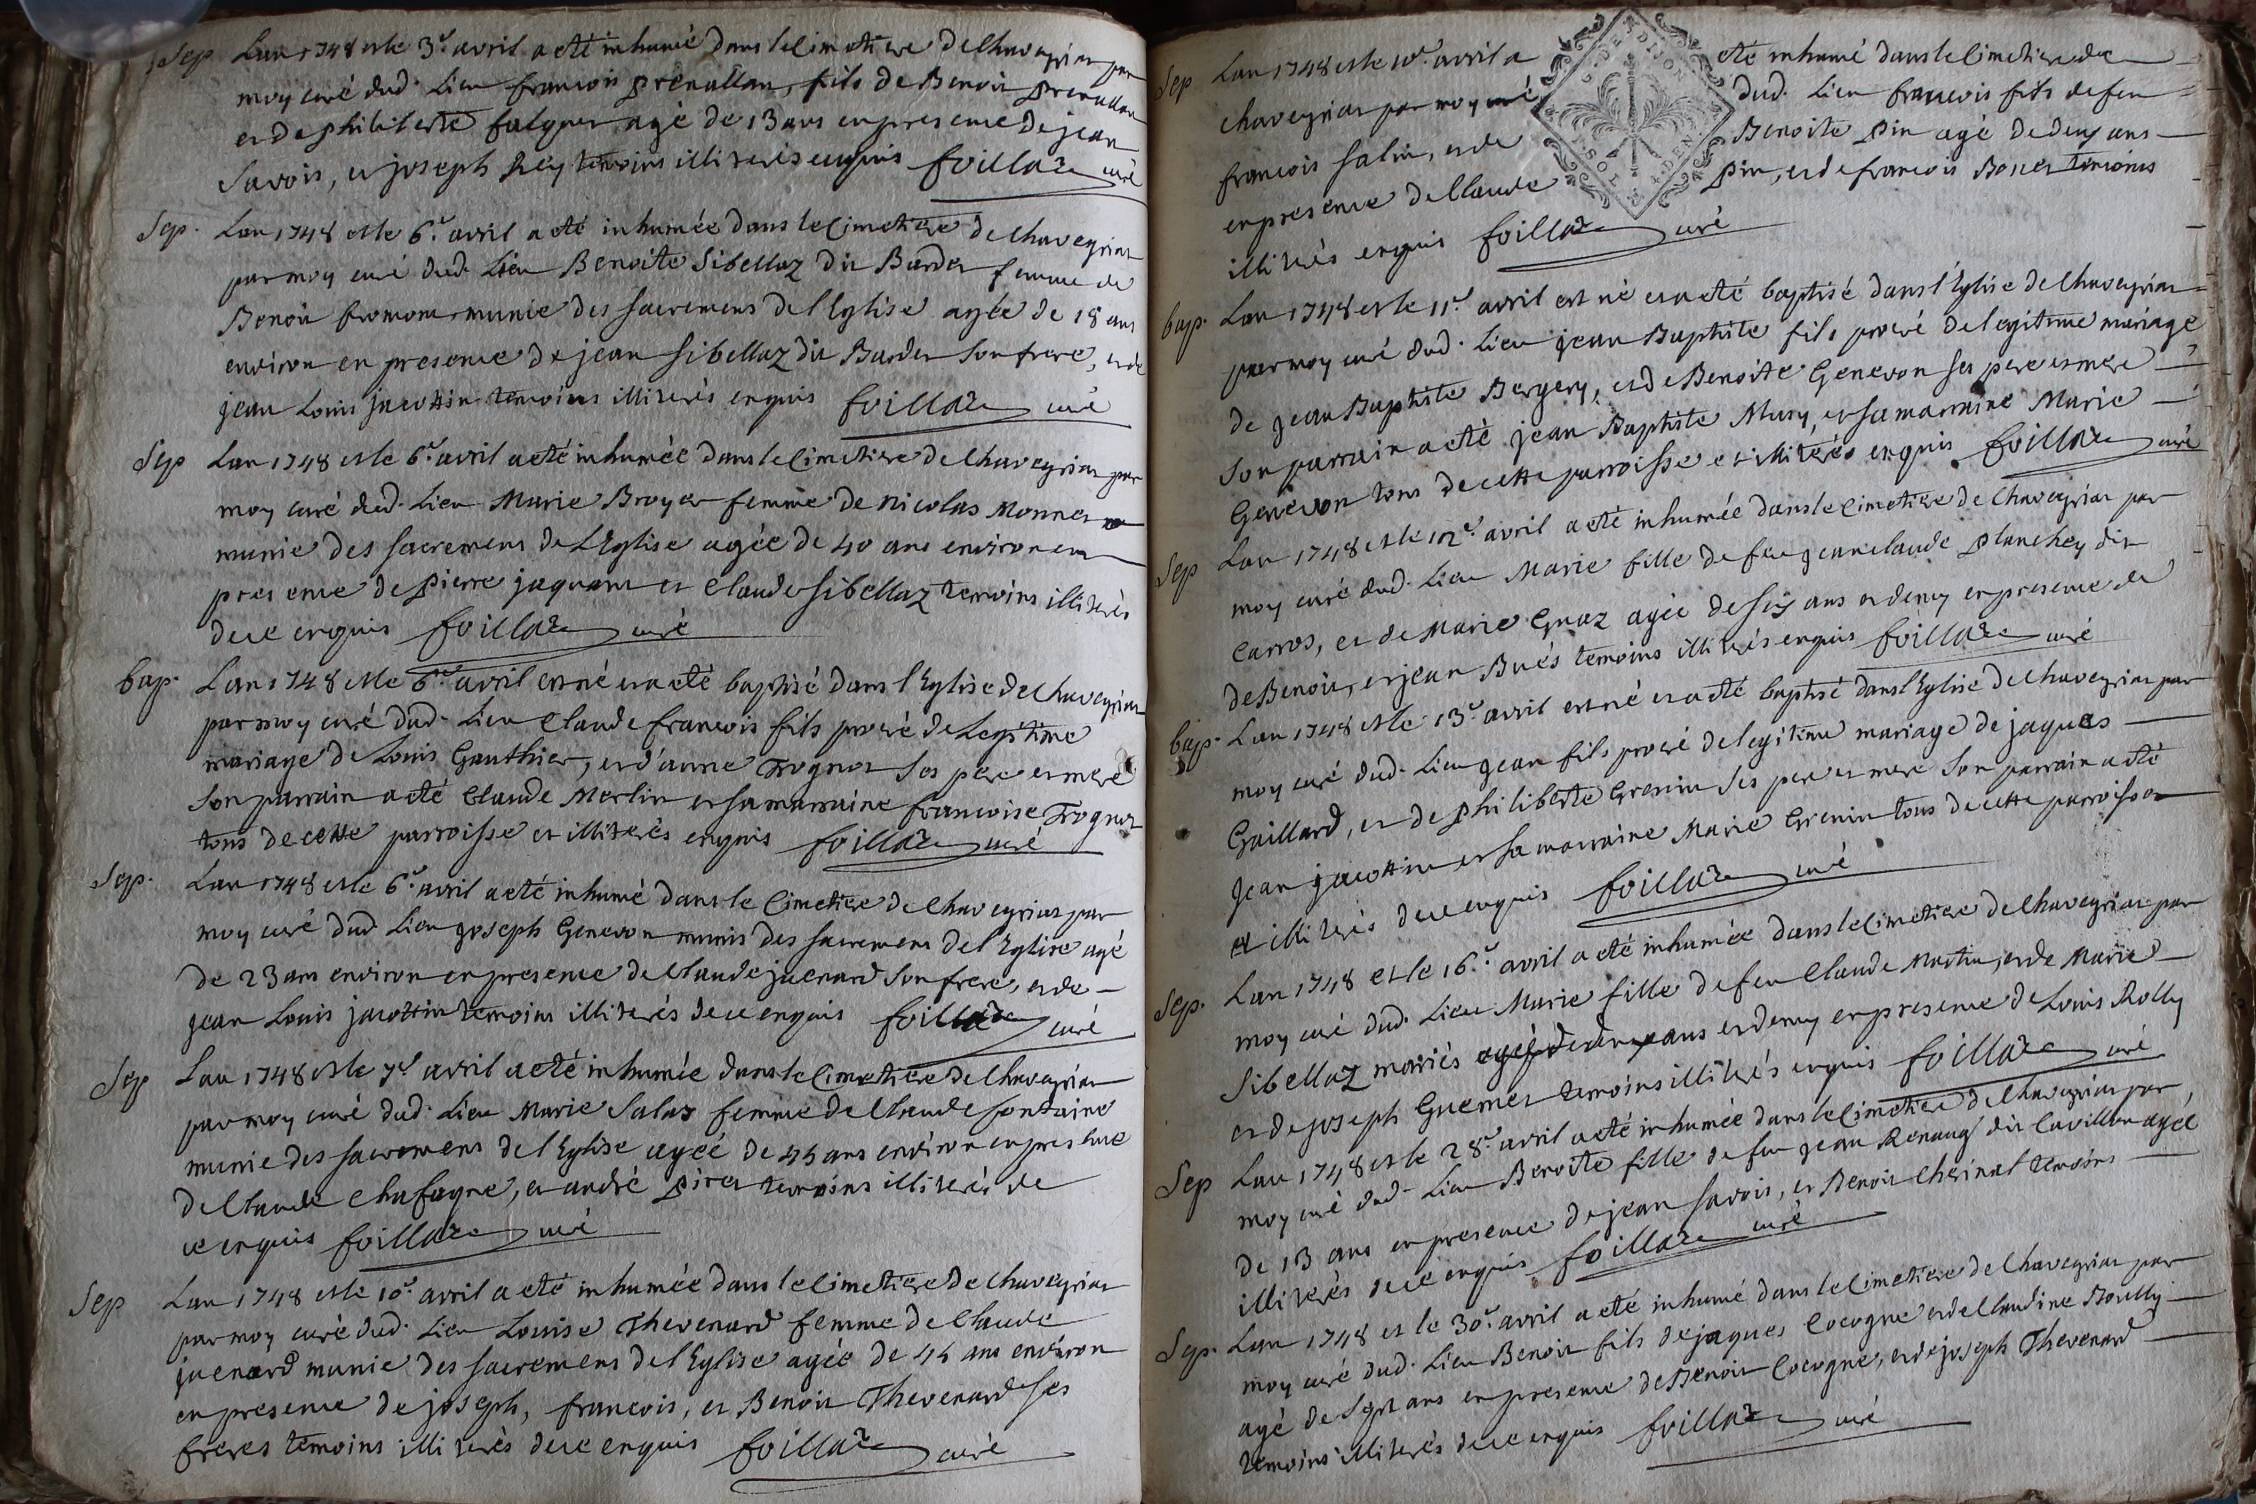 Sep Lan 1748 et le 3e. avril a eté inhumé dans le Cimetiere de Chaveyriat par
moy curé dud. Lieu francois prevallan, fils de Benoit prevallan
et de philiberte falquet agé de 13 ans en presence de jean
Savois, et joseph Rey temoins illiterés enquis foillaz curé
Sep. Lan 1748 et le 6e. avril a eté inhumée dans le Cimetiere de Chaveyriat
par moy curé dud. Lieu Benoite Sibellaz dit Bardet femme de
Benoit fromont munie des sacremens de l'Eglise agée de 18 ans
environ en presence de jean Sibellaz dit Bardet son frere, et de
jean Louis jacottin temoins illiterés enquis foillaz curé
Sep Lan 1748 et le 6e. avril a eté inhumée dans le Cimetiere de Chaveyriat par
moy curé dud. Lieu Marie Broyer femme de Nicolas Monnet
munie des sacremens de L'Eglise agée de 40 ans environ en
presence de pierre jaquant et Claude Sibellaz temoins illiterés
de ce enquis foillaz curé
bap. Lan 1748 et le 6e. avril est né et a eté baptisé dans l'Eglise de Chaveyriat
par moy curé dud. Lieu Claude francois fils procré de Legitime
mariage de Louis Gauthier, et d'anne Trognot ses pere et mere
son parrain a eté Claude Merlin et sa marraine francoise Trognot
tous de cette parroisse et illiterés enquis foillaz curé
Sep. Lan 1748 et le 6e. avril a eté inhumé dans le Cimetiere de Chaveyriat par
moy curé dud Lieu joseph Genevon munis des sacremens de l'Eglise agé
de 23 ans environ en presence de Claude juenard son frere, et de
jean Louis jacottin temoins illiterés de ce enquis foillaz curé
Sep Lan 1748 et le 7e avril a eté inhumée dans le Cimetiere de Chaveyriat
par moy curé dud. Lieu Marie Salaz femme de Claude fontaine
munie des sacremens de l'Eglise agée de 45 ans environ en presence
de Claude Chafagne, et andré piret temoins illiterés de
ce enquis foillaz curé
Sep Lan 1748 et le 10e. avril a eté inhumée dans le Cimetiere de Chaveyriat
par moy curé dud. Lieu Louise Thevenard femme de Claude
juenard munie des sacremens de l'Eglise agée de 45 ans environ
en presence de joseph, francois, et Benoit Thevenard ses
freres temoins illiterés de ce enquis foillaz curé
Sep Lan 1748 et le 10e. avril a eté inhumé dans le Cimetiere de
Chaveyriat par moy curé dud. Lieu francois fils de feu
francois Salin, et de Benoite pin agé de deux ans
en presence de Claude pin, et de francois Bonet temoins
illiterés enquis foillaz curé
G. DE DIJON
SOL DEN
bap. Lan 1748 et le 11e. avril est né et a eté baptisé dans l'Eglise de Chaveyriat
par moy curé dud. Lieu jean Baptiste fils procré de legitime mariage
de jean Baptiste Bergery, et de Benoite Genevon ses pere et mere
son parrain a eté jean Baptiste Mury, et sa marraine Marie
Genevon tous de cette parroisse et illiterés enquis foillaz curé
Sep Lan 1748 et le 12e. avril a eté inhumée dans le Cimetiere de Chaveyriat par
moy curé dud. Lieu Marie fille de feu jean claude planchey dit
Carros, et de Marie Gnaz agée de six ans et demy en presence de
de Benoit, et jean Bués temoins illiterés enquis foillaz curé
bap. Lan 1748 et le 13e. avril est né et a eté baptisé dans l'Eglise de Chaveyriat par
moy curé dud. Lieu jean fils procré de legitime mariage de jaques
Gaillard, et de philiberte Grenin ses pere et mere son parrain a eté
jean jacottin et sa marraine Marie Grenin tous de cette parroisse
et illiterés de ce enquis foillaz curé
Sep. Lan 1748 et le 16e. avril a eté inhumée dans le Cimetiere de Chaveyriat par
moy curé dud. Lieu Marie fille de feu Claude Martin, et de Marie
Sibellaz mariés agée de deux ans et demy en presence de Louis Rolly
et de joseph Guemet temoins illiterés enquis foillaz curé
Sep Lan 1748 et le 28e. avril a eté inhumée dans le Cimetiere de Chaveyriat par
moy curé dud. Lieu Benoite fille de feu jean Renaug dit Cavillon agée
de 13 ans en presence de jean Savois, et Benoit Cheinat temoins
illiterés de ce enquis foillaz curé
Sep. Lan 1748 et le 30e. avril a eté inhumé dans le Cimetiere de Chaveyriat par
moy curé dud. Lieu Benoit fils de jaques Cocogne et de Claudine Bouilly
agé de sept ans en presence de Benoit Cocogne, et de joseph Thevenard
temoins illiterés de ce enquis foillaz curé